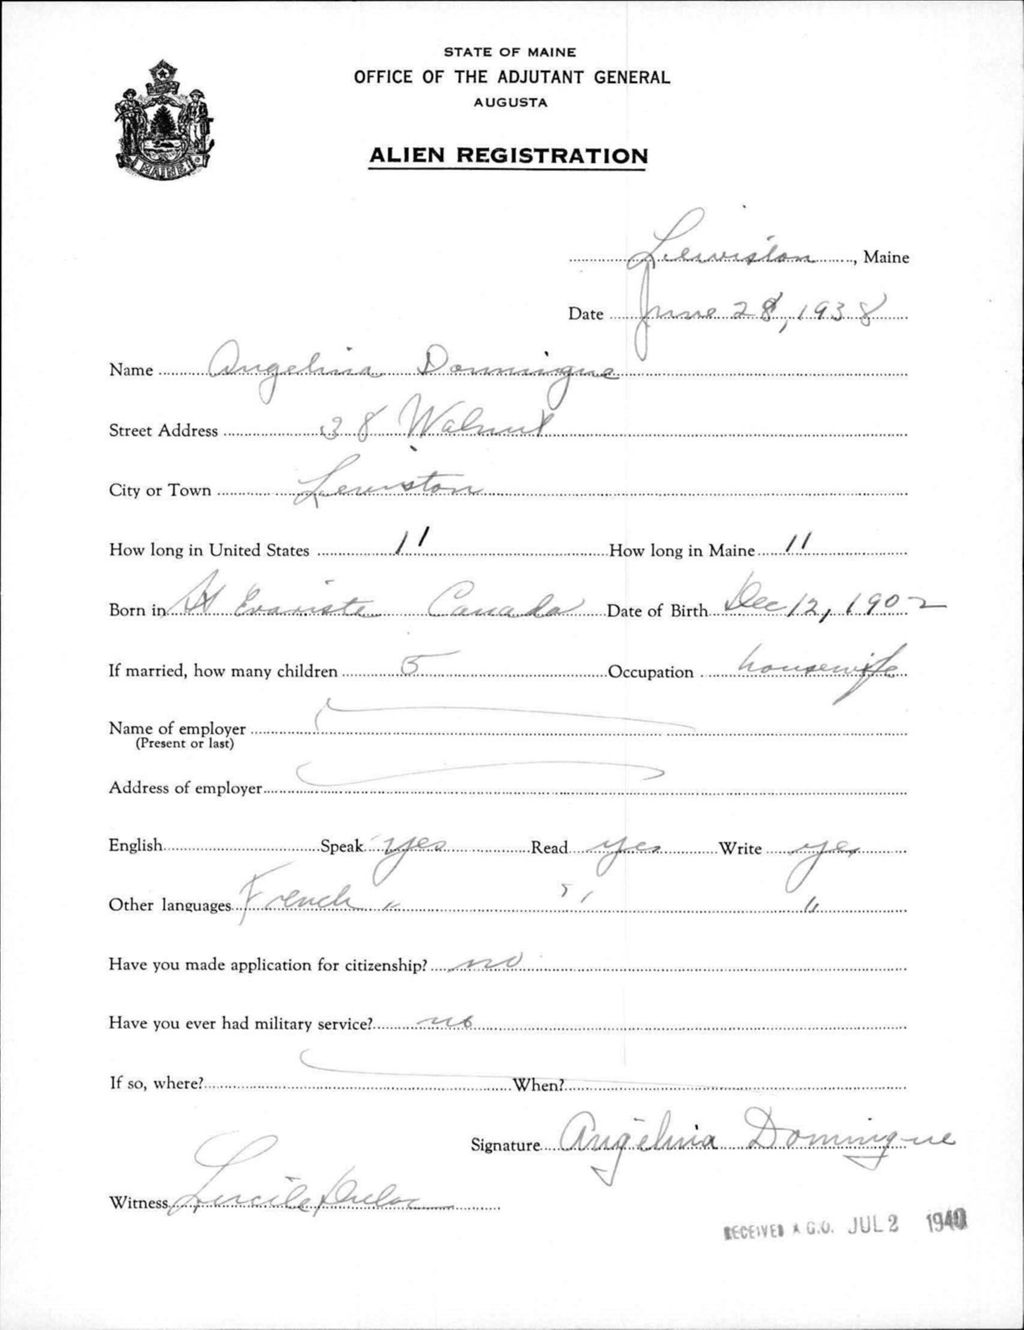 STATE OF MAINE
OFFICE OF THE ADJUTANT GENERAL
AUGUSTA
ALIEN REGISTRATION
MAINE
Lewiston, Maine
Date June 28, 1938
Name Angelina Domingue
Street Address 38 Walnut
City or Town Lewiston
How long in United States 11 How long in Maine 11
Born in St Evariste Canada Date of Birth Dec 12, 1902
If married, how many children 5 Occupation housewife
Name of employer
(Present or last)
Address of employer
English Speak yes Read yes Write yes
Other languages French " " "
Have you made application for citizenship? no
Have you ever had military service? no
If so, where? When?
Signature Angélina Domingue
Witness Lucile
RECEIVED A.G.O. JUL 2 1940